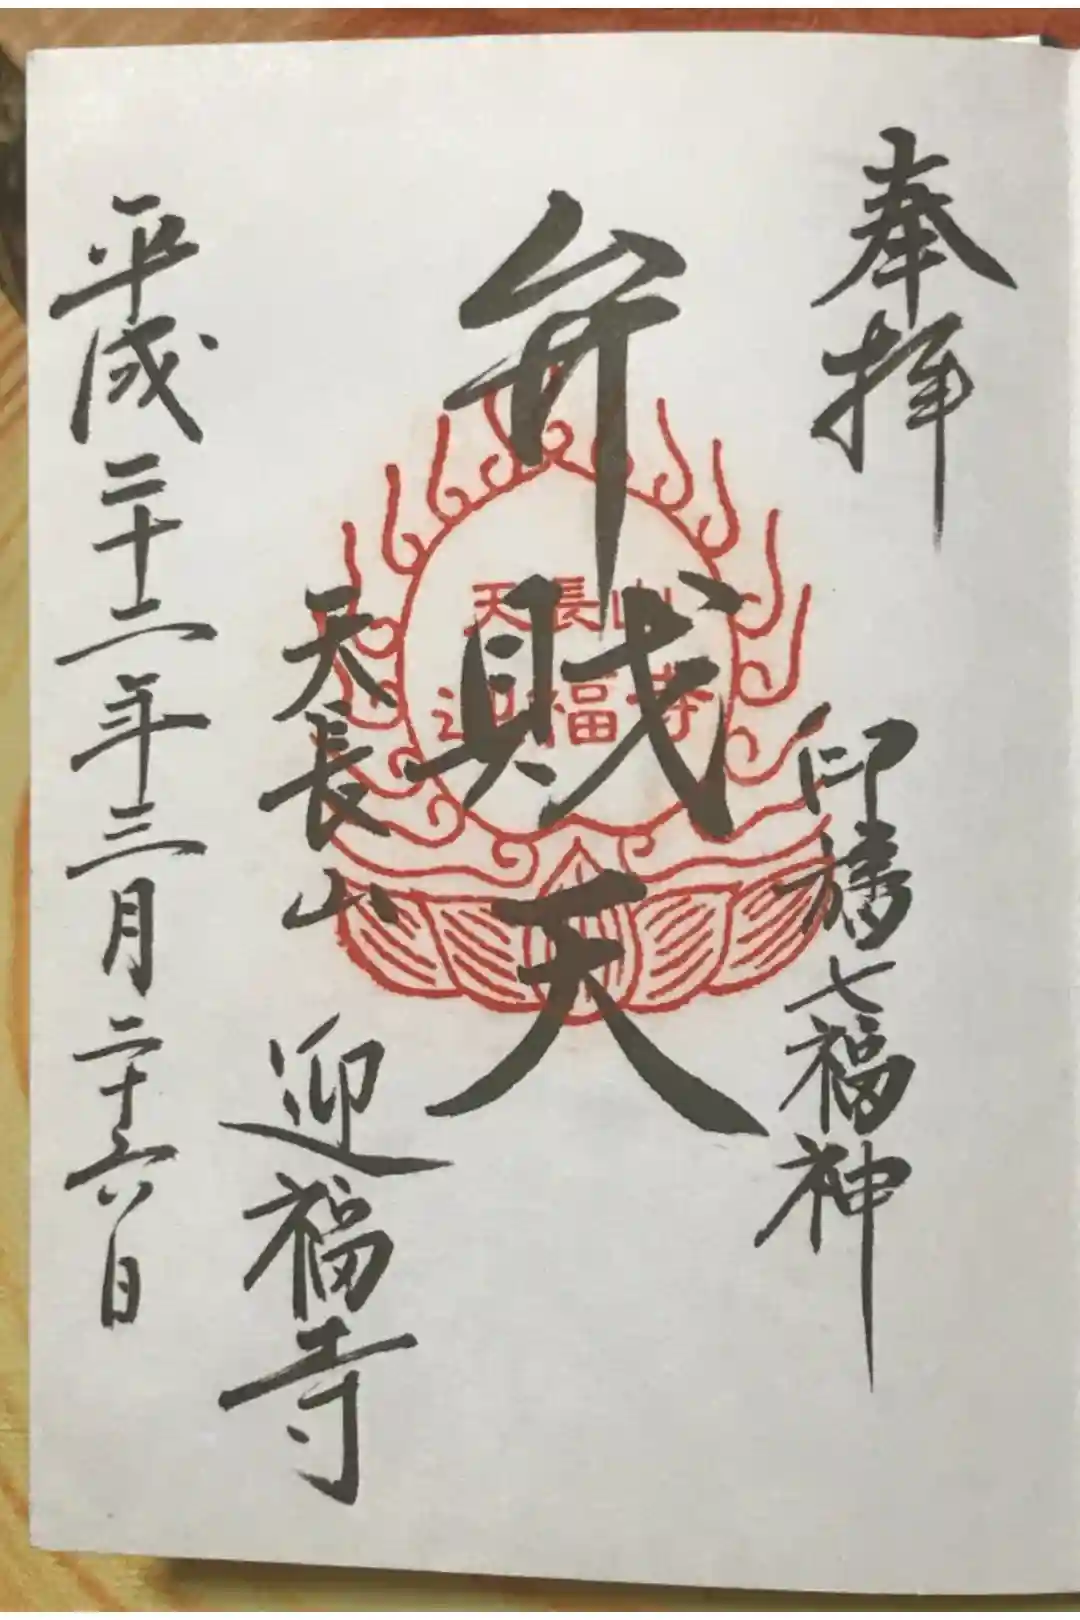 奉拝
印旛七福神
弁財天
天長山
迎福寺
天長山 迎福寺
平成二十二年三月二十六日